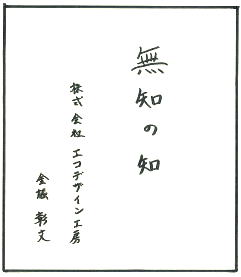 無知の知
株式会社 エコデザイン工房
金坂 彰文